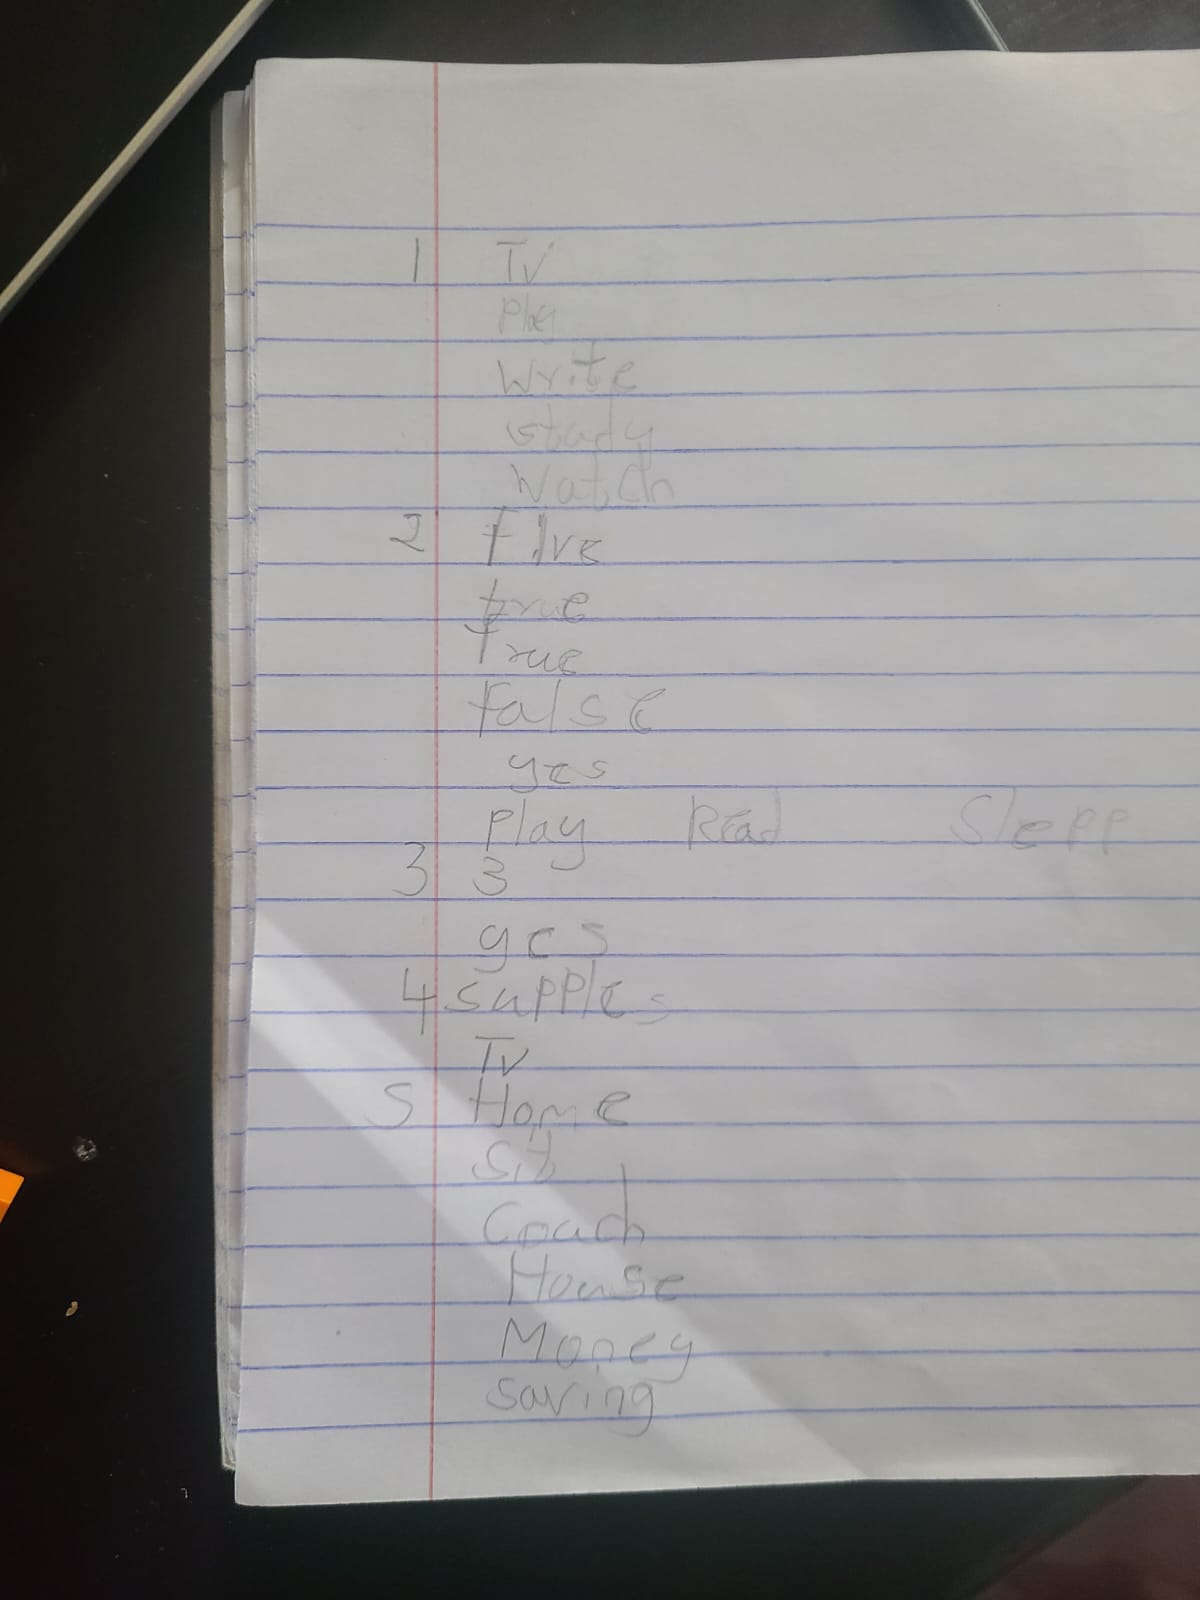 1 Tv
Play
Write
study
Watch
2 Five
true
True
False
yes
Play Read Slepp
3 3
yes
4 supples
Tv
5 Home
Sit
Coach
House
Money
saving